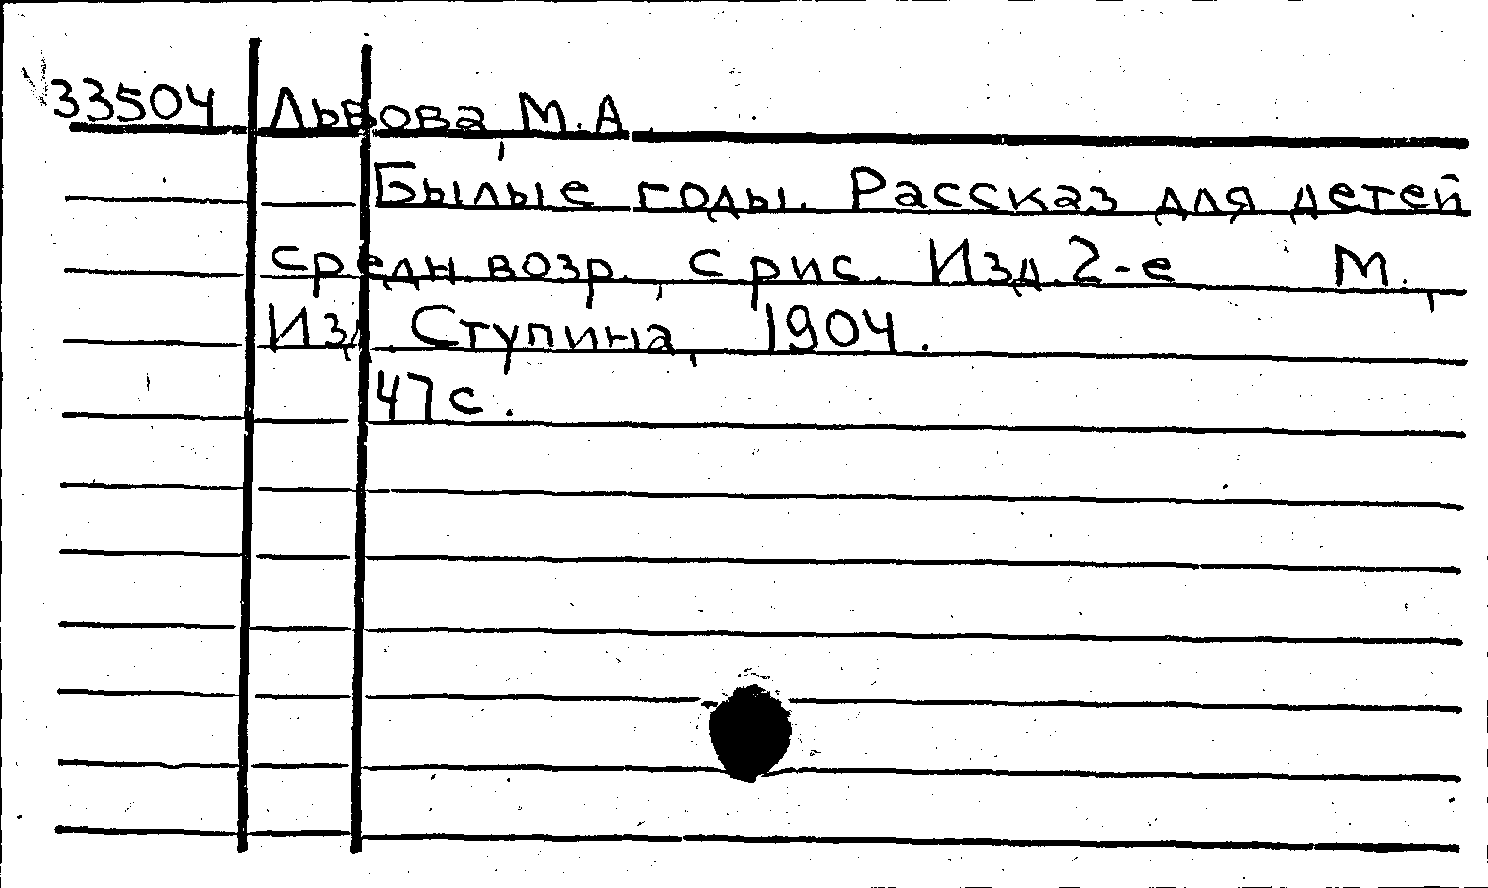 33504 Львова М.А.
Былые годы. Рассказ для детей
средн. возр. с рис. Изд. 2-е М.,
Изд. Ступина, 1904.
47 с.